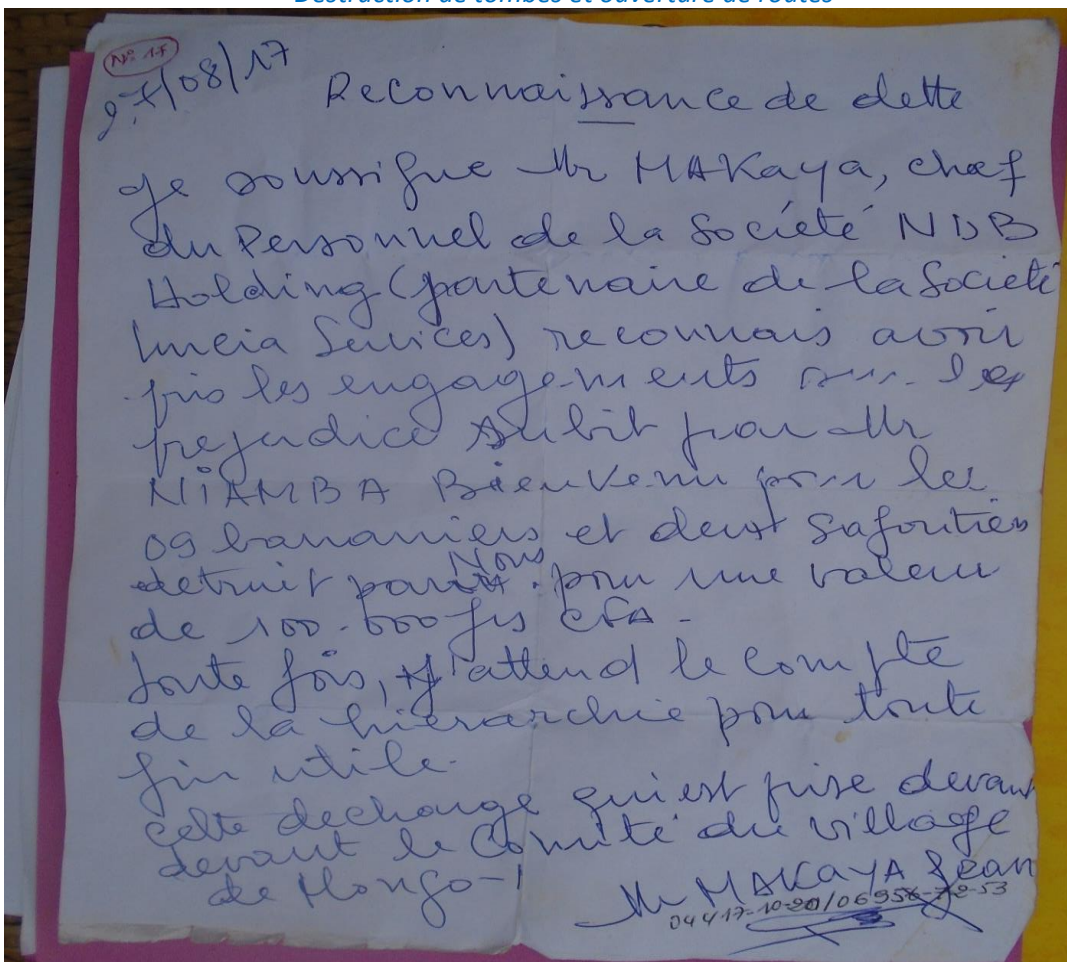 Destruction de tombes et ouverture de routes
N° 17
27/08/17
Reconnaissance de dette
Je soussigne Mr MAKaya, chef
du Personnel de la Société NDB
Holding (partenaire de la Societé
Lincia Services) reconnais avoir
pris les engagements sur les
prejudice subit par Mr
NIAMBA Bienvenu pour les
09 bananiers et deux Safoutiers
detruit par Nous pour une valeur
de 100.000 frs CFA -
toute fois, j'attend le compte
de la hierarchie pour toute
fin utile.
cette decharge qui est prise devant
devant le Comité du village
de Mongo-
Mr MAKAYA Jean